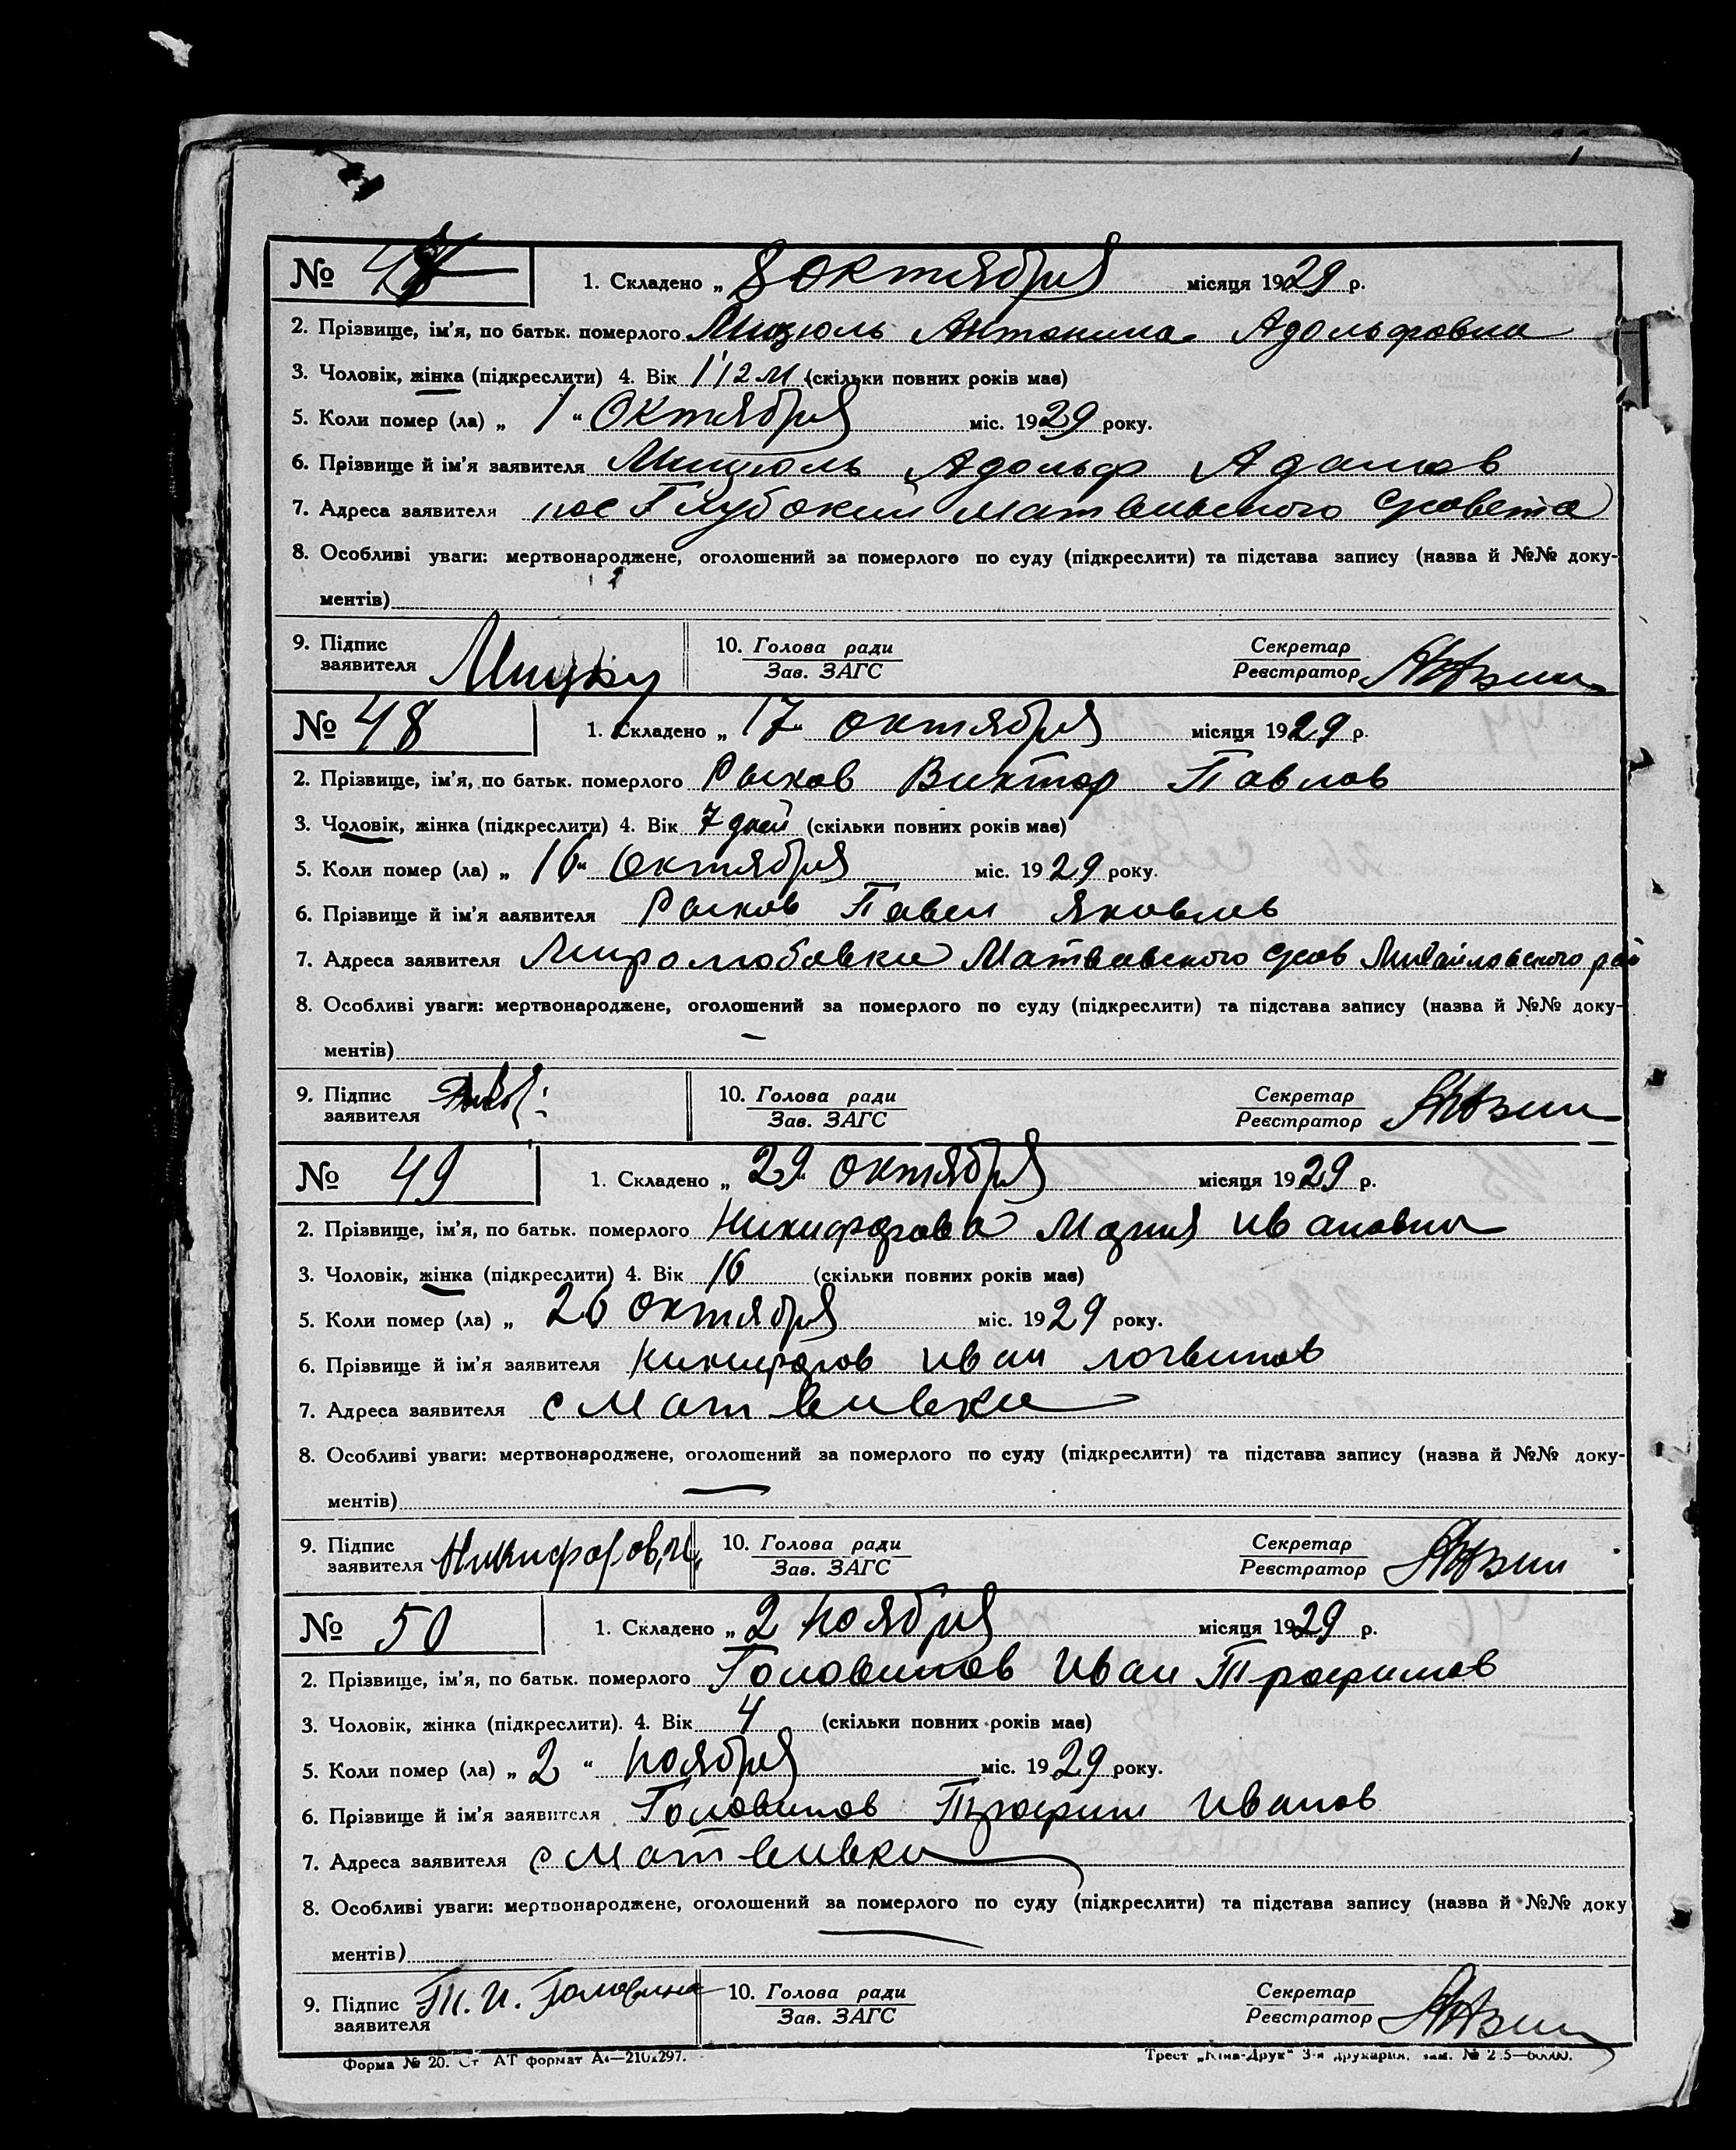 № 47 1. Складено „ 8 октября місяця 1929 р.
2. Прізвище, ім'я, по батьк. померлого Мицюль Антонина Адольфовна
3. Чоловік, жінка (підкреслити) 4. Вік 1 1/2 м (скільки повних років має)
5. Коли помер (ла) „ 1 “ Октября міс. 1929 року.
6. Прізвище й ім'я заявителя Мицюль Адольф Адамов
7. Адреса заявителя пос Глубокий
8. Особливі уваги: мертвонароджене, оголошений за померлого по суду (підкреслити) та підстава запису (назва й №№ доку-
ментів)
9. Підпис заявителя 10. Голова ради Зав. ЗАГС Секретар Реєстратор
№ 48 1. Складено „ 17 “ октября місяця 1929 р.
2. Прізвище, ім'я, по батьк. померлого Рыков Виктор Павлов
3. Чоловік, жінка (підкреслити) 4. Вік 7 дней (скільки повних років має)
5. Коли помер (ла) „ 16 “ Октября міс. 1929 року.
6. Прізвище й ім'я заявителя Рыков Павел Яковлев
7. Адреса заявителя Миролюбовка Михайловского рай
8. Особливі уваги: мертвонароджене, оголошений за померлого по суду (підкреслити) та підстава запису (назва й №№ доку-
ментів) —
9. Підпис заявителя 10. Голова ради Зав. ЗАГС Секретар Реєстратор
№ 49 1. Складено „ 29 “ октября місяця 1929 р.
2. Прізвище, ім'я, по батьк. померлого Никифорова Мария Ивановна
3. Чоловік, жінка (підкреслити) 4. Вік 16 (скільки повних років має)
5. Коли помер (ла) „ 26 октября міс. 1929 року.
6. Прізвище й ім'я заявителя Никифоров Иван Логвинов
7. Адреса заявителя с Матвивка
8. Особливі уваги: мертвонароджене, оголошений за померлого по суду (підкреслити) та підстава запису (назва й №№ доку-
ментів) —
9. Підпис заявителя Никифоров, И. 10. Голова ради Зав. ЗАГС Секретар Реєстратор
№ 50 1. Складено „ 2 Ноября місяця 1929 р.
2. Прізвище, ім'я, по батьк. померлого Головинов Иван Трофимов
3. Чоловік, жінка (підкреслити). 4. Вік 4 (скільки повних років має)
5. Коли помер (ла) „ 2 “ Ноября міс. 1929 року.
6. Прізвище й ім'я заявителя Головинов Трофим Иванов
7. Адреса заявителя с Матвивка
8. Особливі уваги: мертвонароджене, оголошений за померлого по суду (підкреслити) та підстава запису (назва й №№ доку
ментів) —
9. Підпис заявителя Т. И. Головина 10. Голова ради Зав. ЗАГС Секретар Реєстратор
Форма № 20. Ст АТ формат А4—210x297. Трест „Київ-Друк“ 3-я друкарня,